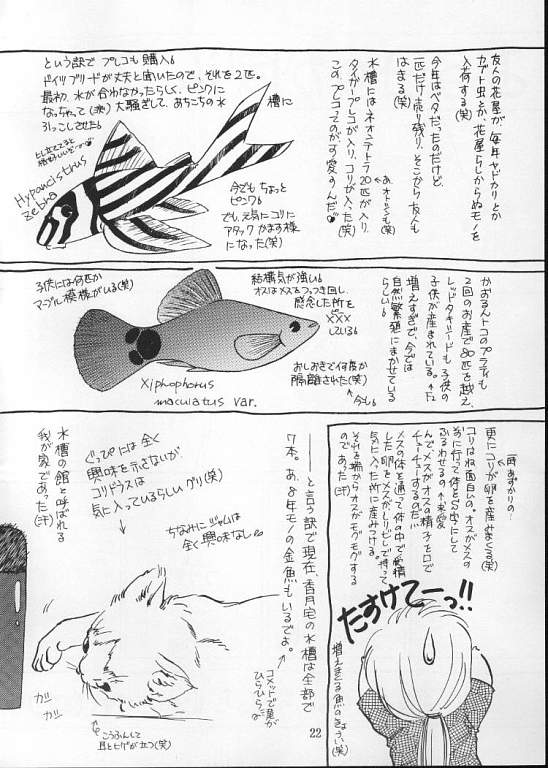 友人の花屋が、毎年ヤドカリとか
カブト虫とか、花屋らしからぬモノを
入荷する(笑)
今年はベタだったのだけど、
一匹だけ売り残り、そこから友人も
はまる(笑)
水槽にはネオンテトラ20匹が入り、
あ、オトシンも(笑)
タイガープレコが入り、コリが入った(笑)
この、プレコってのがす愛すんだ
という訳で プレコも購入。
ドイツブリードが丈夫と聞いたので、それを2匹。
最初、水が合わなかったらしく、ピンクに
なっちゃって(涙) 大騒ぎして、あちこちの水槽に
引っこしさせた。
Hypancistrus
zebra
今でもちょっと
ピンク。
でも、元気にコリに
アタックかます様に
なった(笑)
かおるんトコのプラティも
2回のお産で80匹を越え、
レッドタキシードも子供の
子供が産まれている。↑F2
増えすぎて、今では
自然繁殖にまかせている
らしい。
結構気が強い。
オスはメスをつつき回し、
懸念した所を
×××
している。
おしおきで何度か
隔離された(笑)
↑今も。
子供には何匹か
マーブル模様がいる(笑)
Xiphophorus
maculatus var.
一時あずかりの↑
更にコリが卵を産せまくる(笑)
コリはね面白いの。オスがメスの
前に行って体をS字にして
ぶるわせるの↑求愛
んでメスがオスの精子を口で
チューチューするのだ!!
メスの体を通って体の中で受精
した卵をメスがヒレで持って、
気に入った所に産みつける。
それを端からオスがモグモグする
のであった(汗)
たすけてーっ!!
増えまくる魚のきょうい(笑)
――と言う訳で現在、香月宅の水槽は全部で
7本。あ、8年モノの金魚もいるでよ。
コメットで尾が
ひらひらな
ぐっぴには全く
興味を示さないが、
コリドラスは
気に入っているらしいグリ(笑)
ちなみにジャムは
全く興味なし。
水槽の館と呼ばれる
我が家であった(汗)
ガ
ガ
ガ
ガ
こうふんして
耳とヒゲが立つ(笑)
22